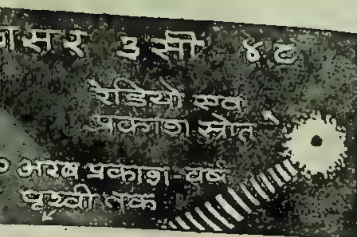 सर ३ सी ४८
रेडियो एव
प्रकाश स्रोत
अरब प्रकाश-वर्ष
पृथ्वी तक